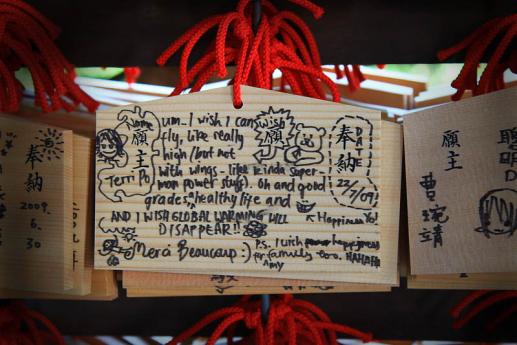 um.. I wish I can
fly, like really
high / but not
with wings - like kinda super-
man power stuff). Oh and good
grades, healthy life and
Happiness Yo!
AND I WISH GLOBAL WARMING WILL
DISAPPEAR!!
Merci Beaucoup :)
P.S. I wish happiness
for family too. HAHAHA
Amy
name
願主
Terri Po
wish
願主
DATE
奉納
22/7/09
奉納
2009.
6.
30
願主
曹琬靖
聰明